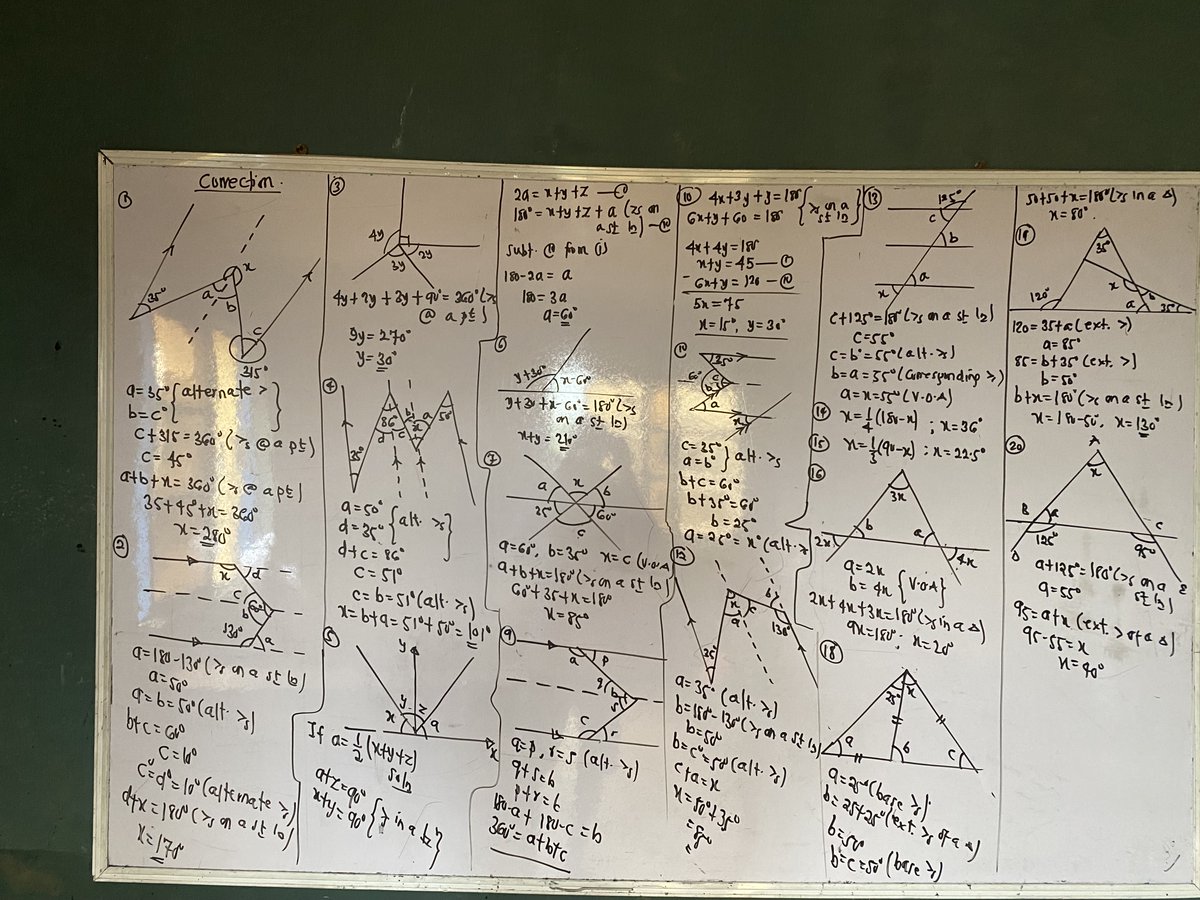 Correction.
①
35°
x
a
b
c
315°
a=35° {alternate >
b=c°
c+315=360° (>s @ a pt)
c=45°
a+b+x=360° (>s @ a pt)
35+45°+x=360
x=280°
②
x
d
c
b
130°
a
a=180-130° (>s on a st ln)
a=50°
a=b=50° (alt. >s)
b+c=60°
c=10°
c=d=10° (alternate >s)
d+x=180° (>s on a st ln)
x=170°
③
4y
2y
3y
4y+2y+3y+90°=360° (>s @ a pt)
9y=270°
y=30°
④
86°
d
c
b
a
x
50°
35°
a=50°
d=35° {alt. >s}
d+c=86°
c=51°
c=b=51° (alt. >s)
x=b+a=51°+50°=101°
⑤
y
y
x
z
a
x
If a=1/2(x+y+z)
Soln
a+z=90°
x+y=90° {> in a
2a=x+y+z —①
180°=x+y+z+a (>s on a st ln) —②
Subt. ② from (i)
180-2a=a
180=3a
a=60°
⑥
y+30°
x-60°
y+30+x-60=180° (>s on a st ln)
x+y=210°
⑦
a
x
b
35°
60°
c
a=60°, b=35° x=c (V.O.A)
a+b+x=180° (>s on a st ln)
60°+35+x=180
x=85°
⑨
a
p
q
b
s
c
r
a=p, r=s (alt. >s)
q+s=b
p+r=b
180-a+180-c=b
360°=a+b+c
⑩ 4x+3y+y=180 {> on a st ln}
6x+y+60=180
4x+4y=180
x+y=45 —①
6x+y=120 —②
5x=75
x=15°, y=30°
35°
60°
c
b
a
x
c=35°
a=b° } alt. >s
b+c=60°
b+35°=60°
b=25°
a=25°=x° (alt. >
⑫
x
c
b
a
130°
35°
a=35° (alt. >s)
b=180-130° (>s on a st ln)
b=50°
b=c=50° (alt. >s)
c+a=x
x=50°+35°
=85°
⑬
125°
c
b
a
x
c+125°=180° (>s on a st ln)
c=55°
c=b=55° (alt. >s)
b=a=55° (corresponding >s)
a=x=55° (V.O.A)
⑭ x=1/4(180-x) ; x=36°
⑮ x=1/3(90-x) ; x=22.5°
⑯
3x
2x
b
a
4x
a=2x
b=4x {V.O.A}
2x+4x+3x=180° (>s in a Δ)
9x=180° ; x=20°
⑱
25°
x
a
b
c
a=25° (base >s)
b=25+25° (ext. >s of a Δ)
b=50°
b=c=50° (base >s)
50+50+x=180° (>s in a Δ)
x=80°.
⑲
35°
x
b
120°
a
35°
120=35+a (ext. >)
a=85°
85=b+35° (ext. >)
b=50°
b+x=180° (>s on a st ln)
x=180-50°, x=130°
⑳
A
x
B
a
C
125°
95°
D
E
a+125°=180° (>s on a st ln)
a=55°
95=a+x (ext. > of a Δ)
95-55=x
x=40°